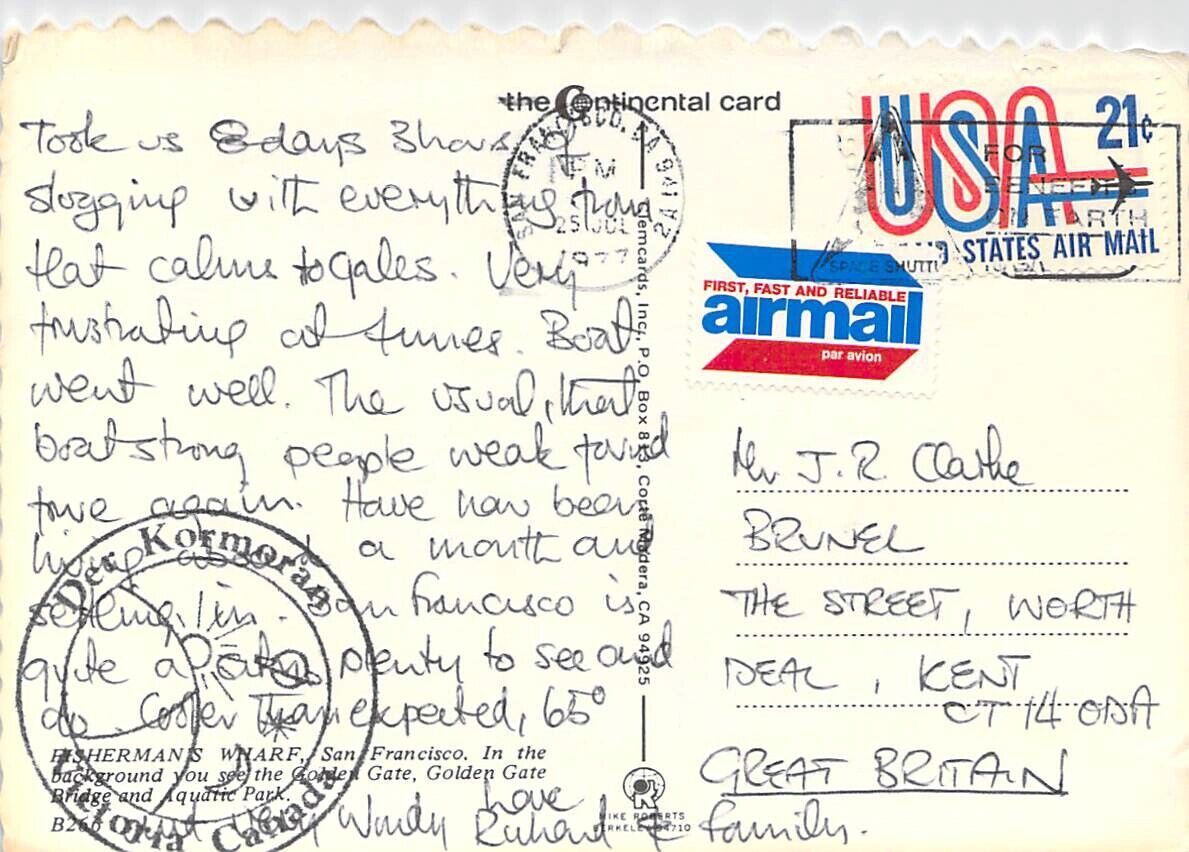 the Continental card
Took us 8 days 3 hours of
slogging with everything from
flat calms to gales. Very
frustrating at times. Boat
went well. The usual, that
boat strong people weak found
true again. Have now been
living about a month and
settling in. San Francisco is
quite a place, plenty to see and
do. Cooler than expected, 65°
but very Windy
love
Richard & family.
FISHERMAN'S WHARF, San Francisco. In the
background you see the Golden Gate, Golden Gate
Bridge and Aquatic Park.
B266
Der Kormoran
Victoria Canada
Clemcards, Inc., P.O. Box 813, Corte Madera, CA 94925
MIKE ROBERTS
BERKELEY 94710
SAN FRANCISCO, CA 941
PM
25 JUL
1977
USA 21¢
UNITED STATES AIR MAIL
FOR
BENEFIT
ON EARTH
SPACE SHUTTLE
FIRST, FAST AND RELIABLE
airmail
par avion
Mr J. R. Clarke
BRUNEL
THE STREET, WORTH
DEAL, KENT
CT14 0DA
GREAT BRITAIN